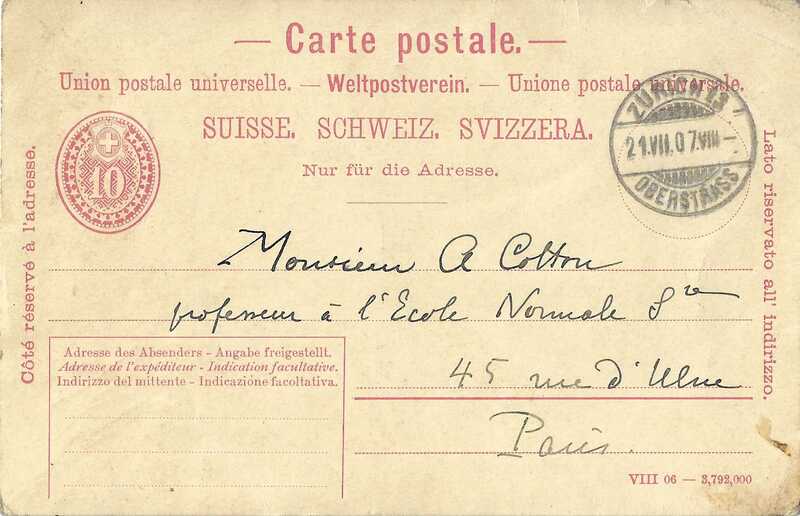 — Carte postale. —
Union postale universelle. — Weltpostverein. — Unione postale universale.
SUISSE. SCHWEIZ. SVIZZERA.
Nur für die Adresse.
10
ZÜRICH 13
21.VII.07.VIII
OBERSTRASS
Côté réservé à l'adresse.
Lato riservato all' indirizzo.
Monsieur A Cotton
professeur à l'Ecole Normale Sre
45 rue d'Ulm
Paris.
Adresse des Absenders - Angabe freigestellt.
Adresse de l'expéditeur - Indication facultative.
Indirizzo del mittente - Indicazione facoltativa.
VIII 06 — 3,792,000